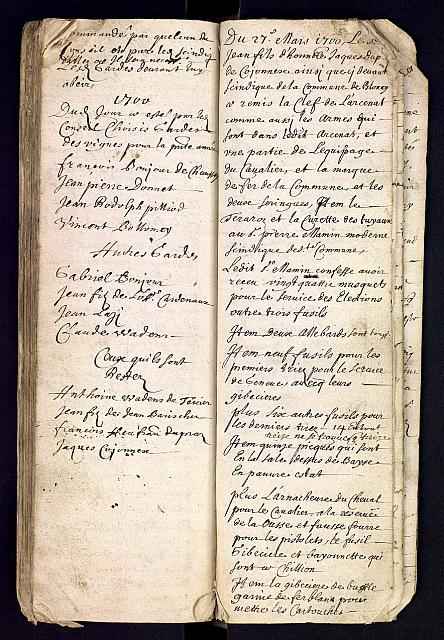 commandé par quelcun du
Les d. Gardes devront luy
obeir,
1700
Dud. Jour a esté pour le
Conseil Choisis Gardes
des vignes pour la pnte année
François bonjour de
Jean pierre Donnet
Jean Rodolph pilliod
Vincent
Autres Gardes
Gabriel Bonjour
Jean filz de
Jean
Claude wadens
Ceux quils sont
Restez
Anthoine wadens de
Jean filz de Jean
François
Jaques Cojonnex
Du 27e. Mars 1700, Le Sr
Jean fils d'honnble Jaques
de Cojonnex ainsi que cy devant
scindique de la Commune de Blonay
a remis la Clef de l'arcenat
comme aussi les Armes qui
sont dans ledit Arcenat, et
une partie de Lequipage
du Cavalier, et la marque
de fer de la Commune, et les
deux seringues, Item le
Teraroz et la Curette des tuyaux
au Sr. pierre Mamin moderne
scindique de d.te Commune,
Ledit Sr. Mamin confesse avoir
receu vingt quattre musquets
pour le service des Elections
outre trois fusils
Item Deux Allebards
Item neuf fusils pour les
premiers triez pour le service
de Geneve avecq leurs
gibecieres
plus six autres fusils pour
les derniers triez
Item quinze picques qui sont
En la sale dessus de Bayse
En pauvre estat
plus L'arnacheure du Cheval
pour le Cavalier, a la reserve
de la Ousse et fausse fourre
pour les pistolets, le fusil
Gibeciere et bayonnette qui
sont a Chillion
Item la gibeciere de buffle
garnie de fer blanc pour
mettre les Cartouches